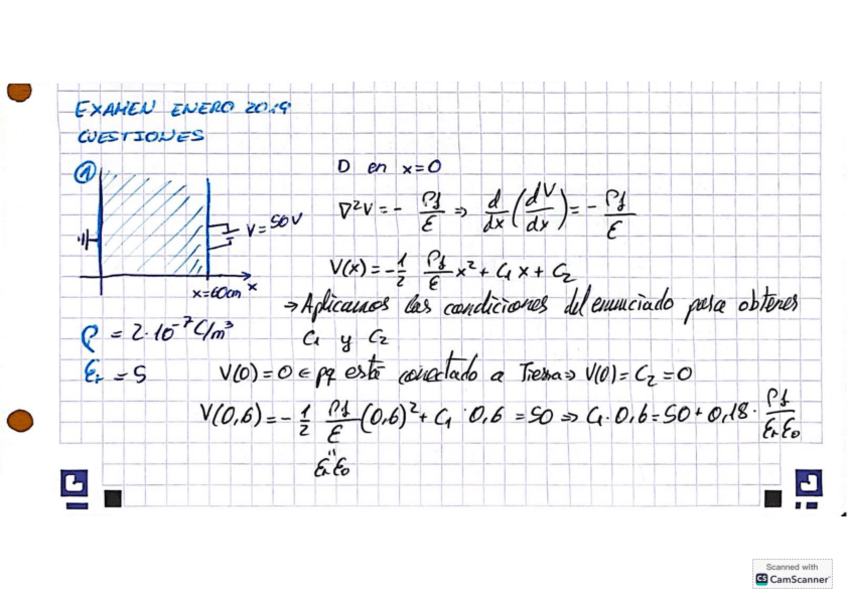 EXAMEN ENERO 2019
CUESTIONES
① D en x=0
∇²V = - ρf/ε ⇒ d/dx (dV/dx) = - ρf/ε
V = 50V
V(x) = -1/2 ρf/ε x² + C₁x + C₂
x=60cm x
→ Aplicamos las condiciones del enunciado para obtener
C₁ y C₂
ρ = 2·10⁻⁷ C/m³
εr = 5
V(0) = 0 ← pq está conectado a Tierra ⇒ V(0) = C₂ = 0
V(0,6) = - 1/2 ρf/ε (0,6)² + C₁ · 0,6 = 50 ⇒ C₁ · 0,6 = 50 + 0,18 · ρf/εrε₀
εrε₀
Scanned with
CS CamScanner